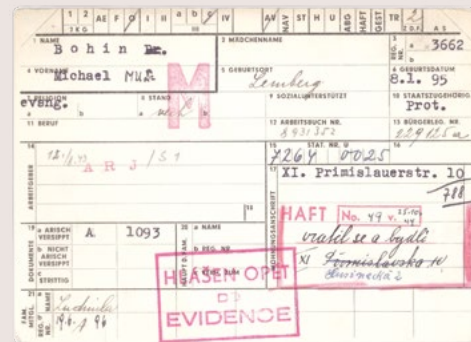 1 2 AE F O I II a b g IV AV NAV ST H U ABG HAFT GEST TR 2
7KG III Z.D.F. A S
1 NAME
Bohin Dr.
2 MÄDCHENNAME
3 REG. NR. a 3662
4 VORNAME
Michael MUDr.
5 GEBURTSORT
Lemberg
6 GEBURTSDATUM
8.1. 95
7 RELIGION
evang.
a b
8 STAND
a b
9 SOZIALUNTERSTÜTZT
10 STAATSZUGEHÖRIG
Prot.
M
11 BERUF
12 ARBEITSBUCH NR.
8931352
13 BÜRGERLEG. NR.
229125a
14 ARBEITGEBER
ARJ /S1
15 STAT. NR. U
7264 0025
16
17 WOHNUNGSANSCHRIFT
XI. Primislauerstr. 10
788
18
HAFT No. 49 v. 25.10. 44
vrátil se a bydlí
XI Přimislavska 10
19 DOKUMENTE
a ARISCH VERSIPPT
A 1093
b NICHT ARISCH VERSIPPT
c STRITTIG
20 a NAME
b REG. NR.
HLÁSEN OPĚT
DO
EVIDENCE
21 FAM. MITGL.
a NAME
Ludmila
b REG. NR.
19.6. 96